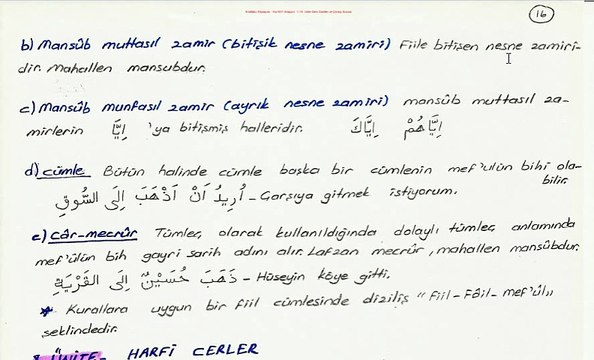 16
b) Mansûb muttasıl zamir (bitişik nesne zamiri) Fiile bitişen nesne zamiri-
dir. Mahallen mansubdur.
c) Mansûb munfasıl zamir (ayrık nesne zamiri) mansûb muttasıl za-
mirlerin إِيَّا 'ya bitişmiş halleridir. إِيَّاكَ إِيَّاهُمْ
d) cümle Bütün halinde cümle başka bir cümlenin mef'ulün bihi ola-
bilir.
أُرِيدُ اَنْ اَذْهَبَ اِلَى السُّوقِ - Çarşıya gitmek istiyorum.
e) Câr-mecrûr Tümleç olarak kullanıldığında dolaylı tümleç anlamında
mef'ülün bih gayri sarih adını alır. Lafzan mecrûr, mahallen mansûbdur.
ذَهَبَ حُسَيْنٌ اِلَى القَرْيَةِ - Hüseyin köye gitti.
* Kurallara uygun bir fiil cümlesinde diziliş "Fiil-Fâil-Mef'ul"
şeklindedir.
ÜNİTE- HARFİ CERLER